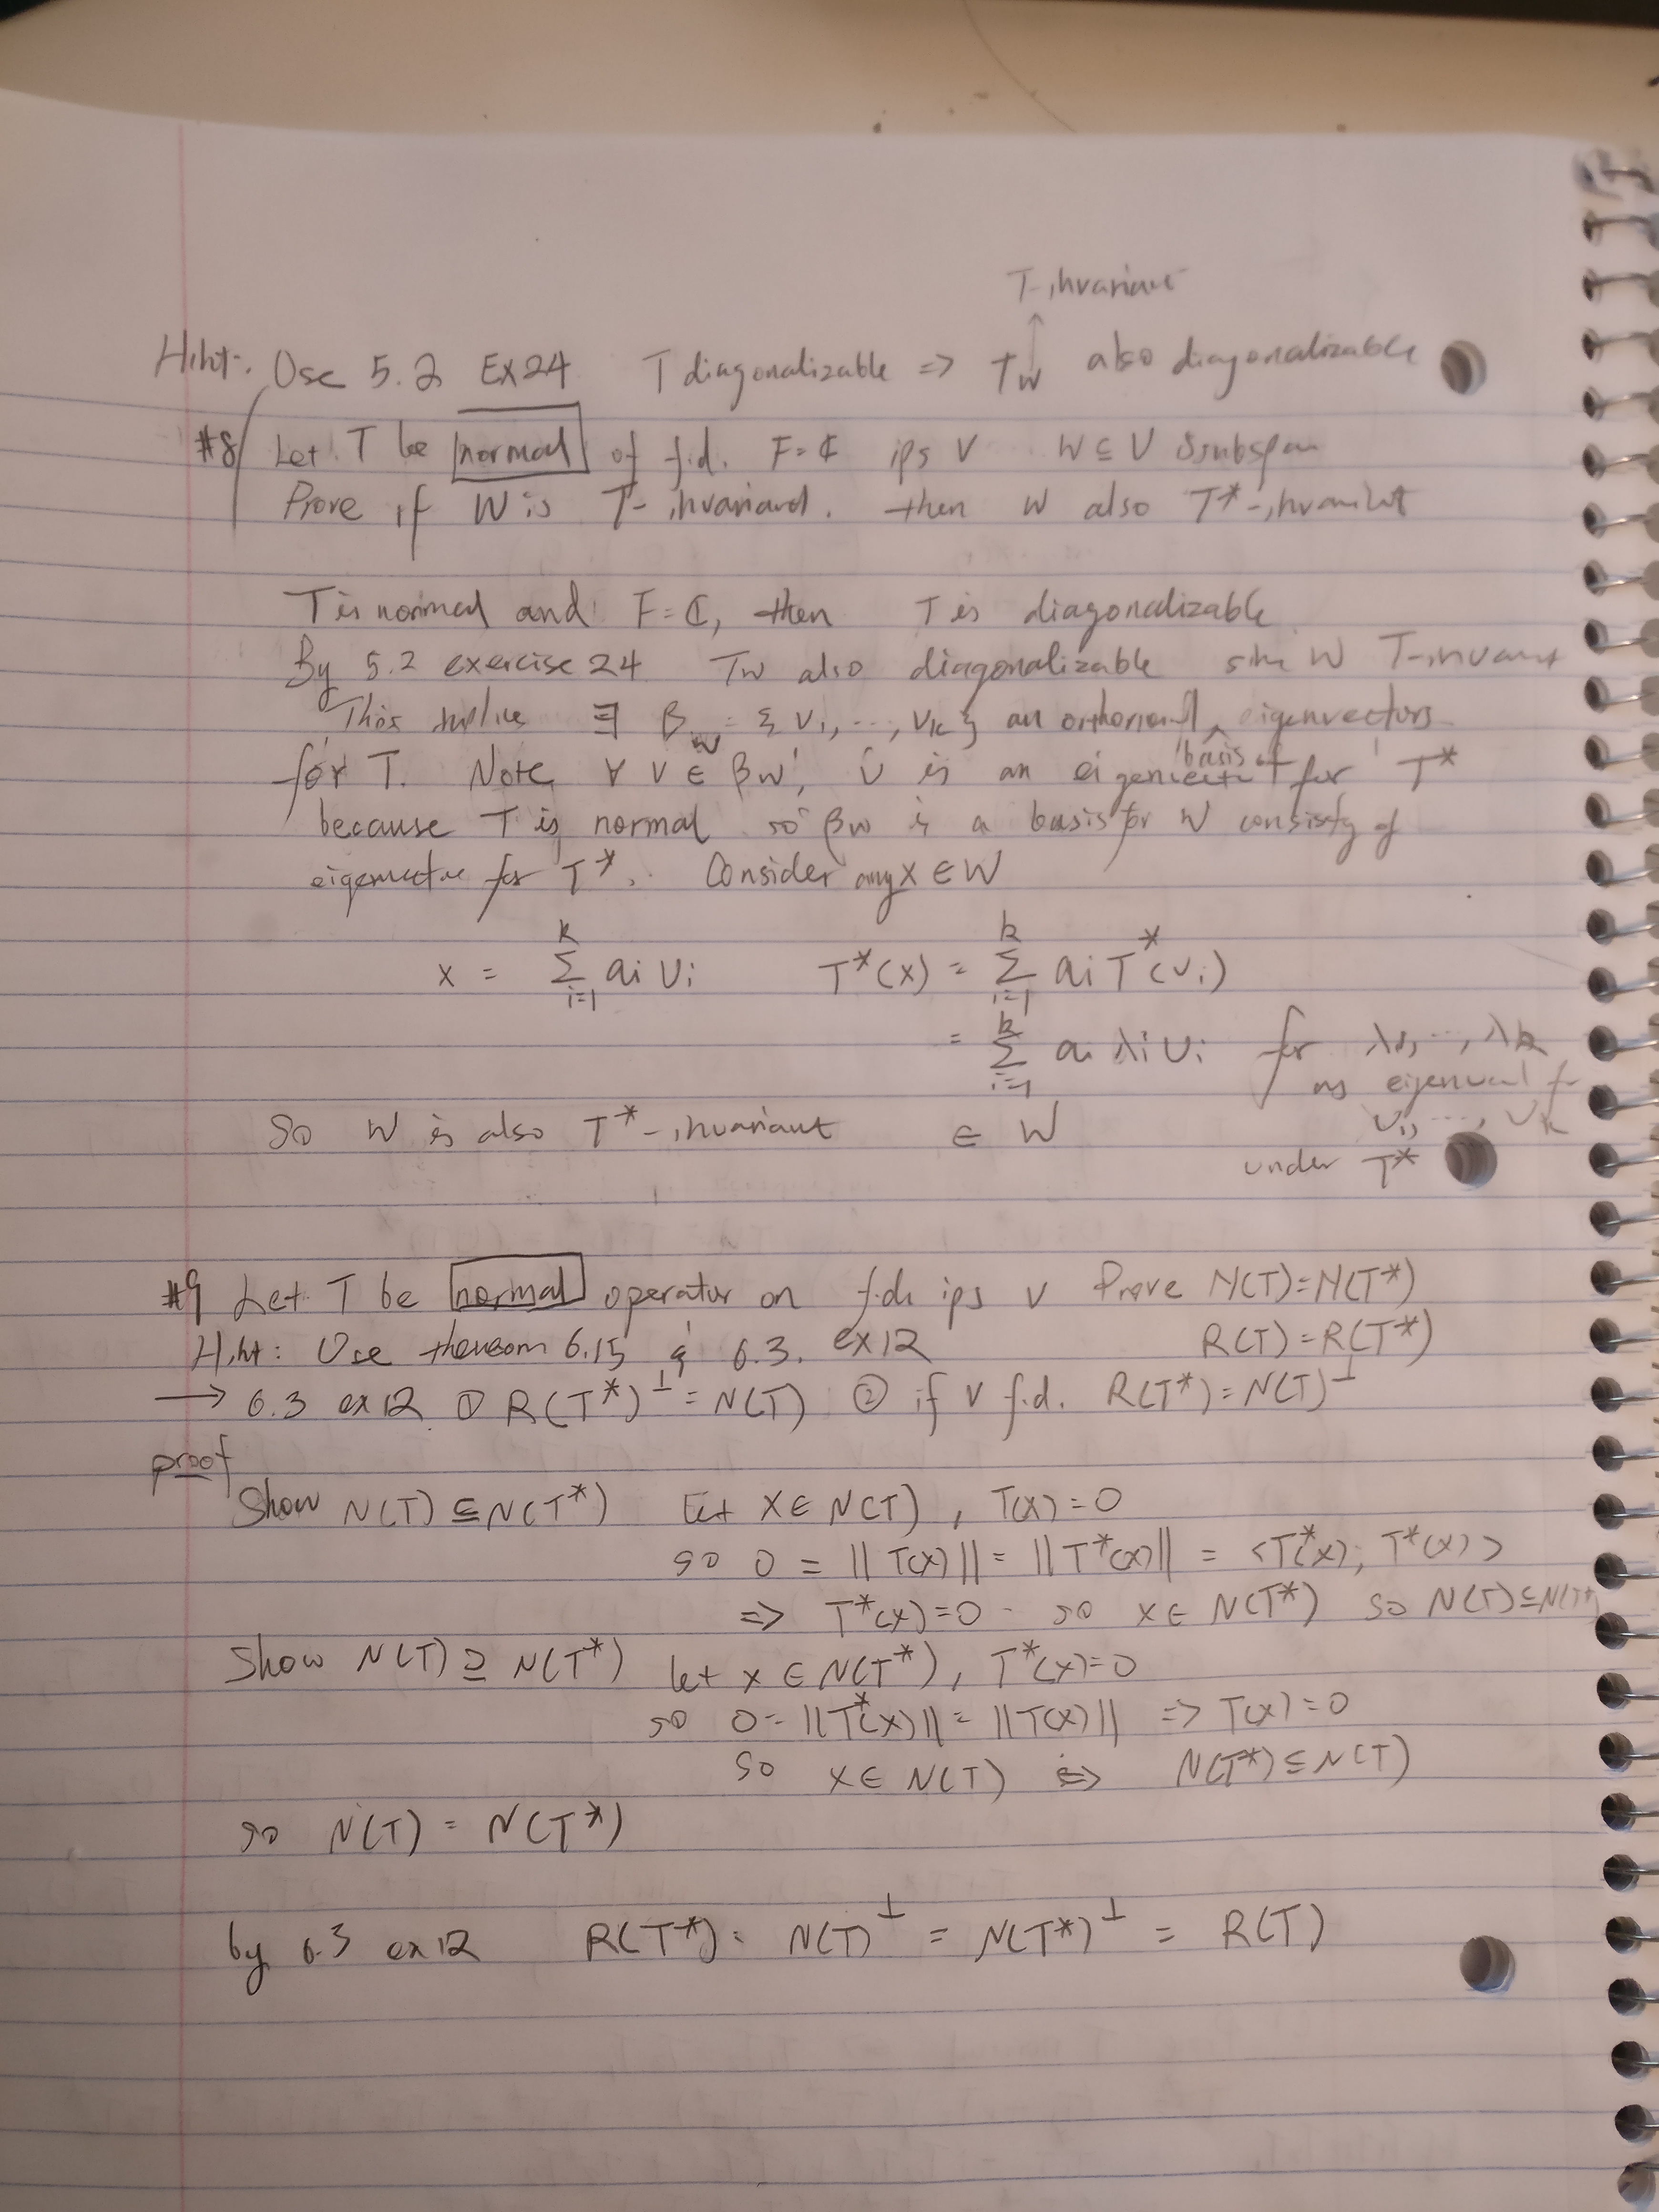 T-invariant
↑
Hint: Use 5.2 Ex24 T diagonalizable => Tw also diagonalizable
#8 Let T be normal of f.d. F=ℂ ips V W⊆V
Prove if W is T-invariant. then W also T*-invariant
T is normal and F=ℂ, then T is diagonalizable
By 5.2 exercise 24 Tw also diagonalizable since W T-invariant
This implies ∃ βw = {v1, ..., vk} an orthonormal basis of eigenvectors
for T. Note ∀ v ∈ βw, v is an eigenvector for T*
because T is normal so βw is a basis for W consisting of
eigenvector for T*. Consider any x ∈ W
x = Σ_{i=1}^{k} ai vi T*(x) = Σ_{i=1}^{k} ai T*(vi)
= Σ_{i=1}^{k} ai λi vi for λ1, ..., λk
as eigenval for
v1, ..., vk
So W is also T*-invariant ∈ W
under T*
#9 Let T be normal operator on f.d. ips V Prove N(T)=N(T*)
R(T)=R(T*)
Hint: Use theorem 6.15 & 6.3. ex12
→ 6.3 ex12 ① R(T*)⊥ = N(T) ② if V f.d. R(T*)=N(T)⊥
proof
Show N(T) ⊆ N(T*) Let x ∈ N(T), T(x)=0
so 0 = ||T(x)|| = ||T*(x)|| = <T*(x), T*(x)>
=> T*(x)=0 so x ∈ N(T*) so N(T)⊆N(T*)
Show N(T) ⊇ N(T*) let x ∈ N(T*), T*(x)=0
so 0 = ||T*(x)|| = ||T(x)|| => T(x)=0
so x ∈ N(T) => N(T*) ⊆ N(T)
so N(T) = N(T*)
by 6.3 ex12 R(T*) = N(T)⊥ = N(T*)⊥ = R(T)